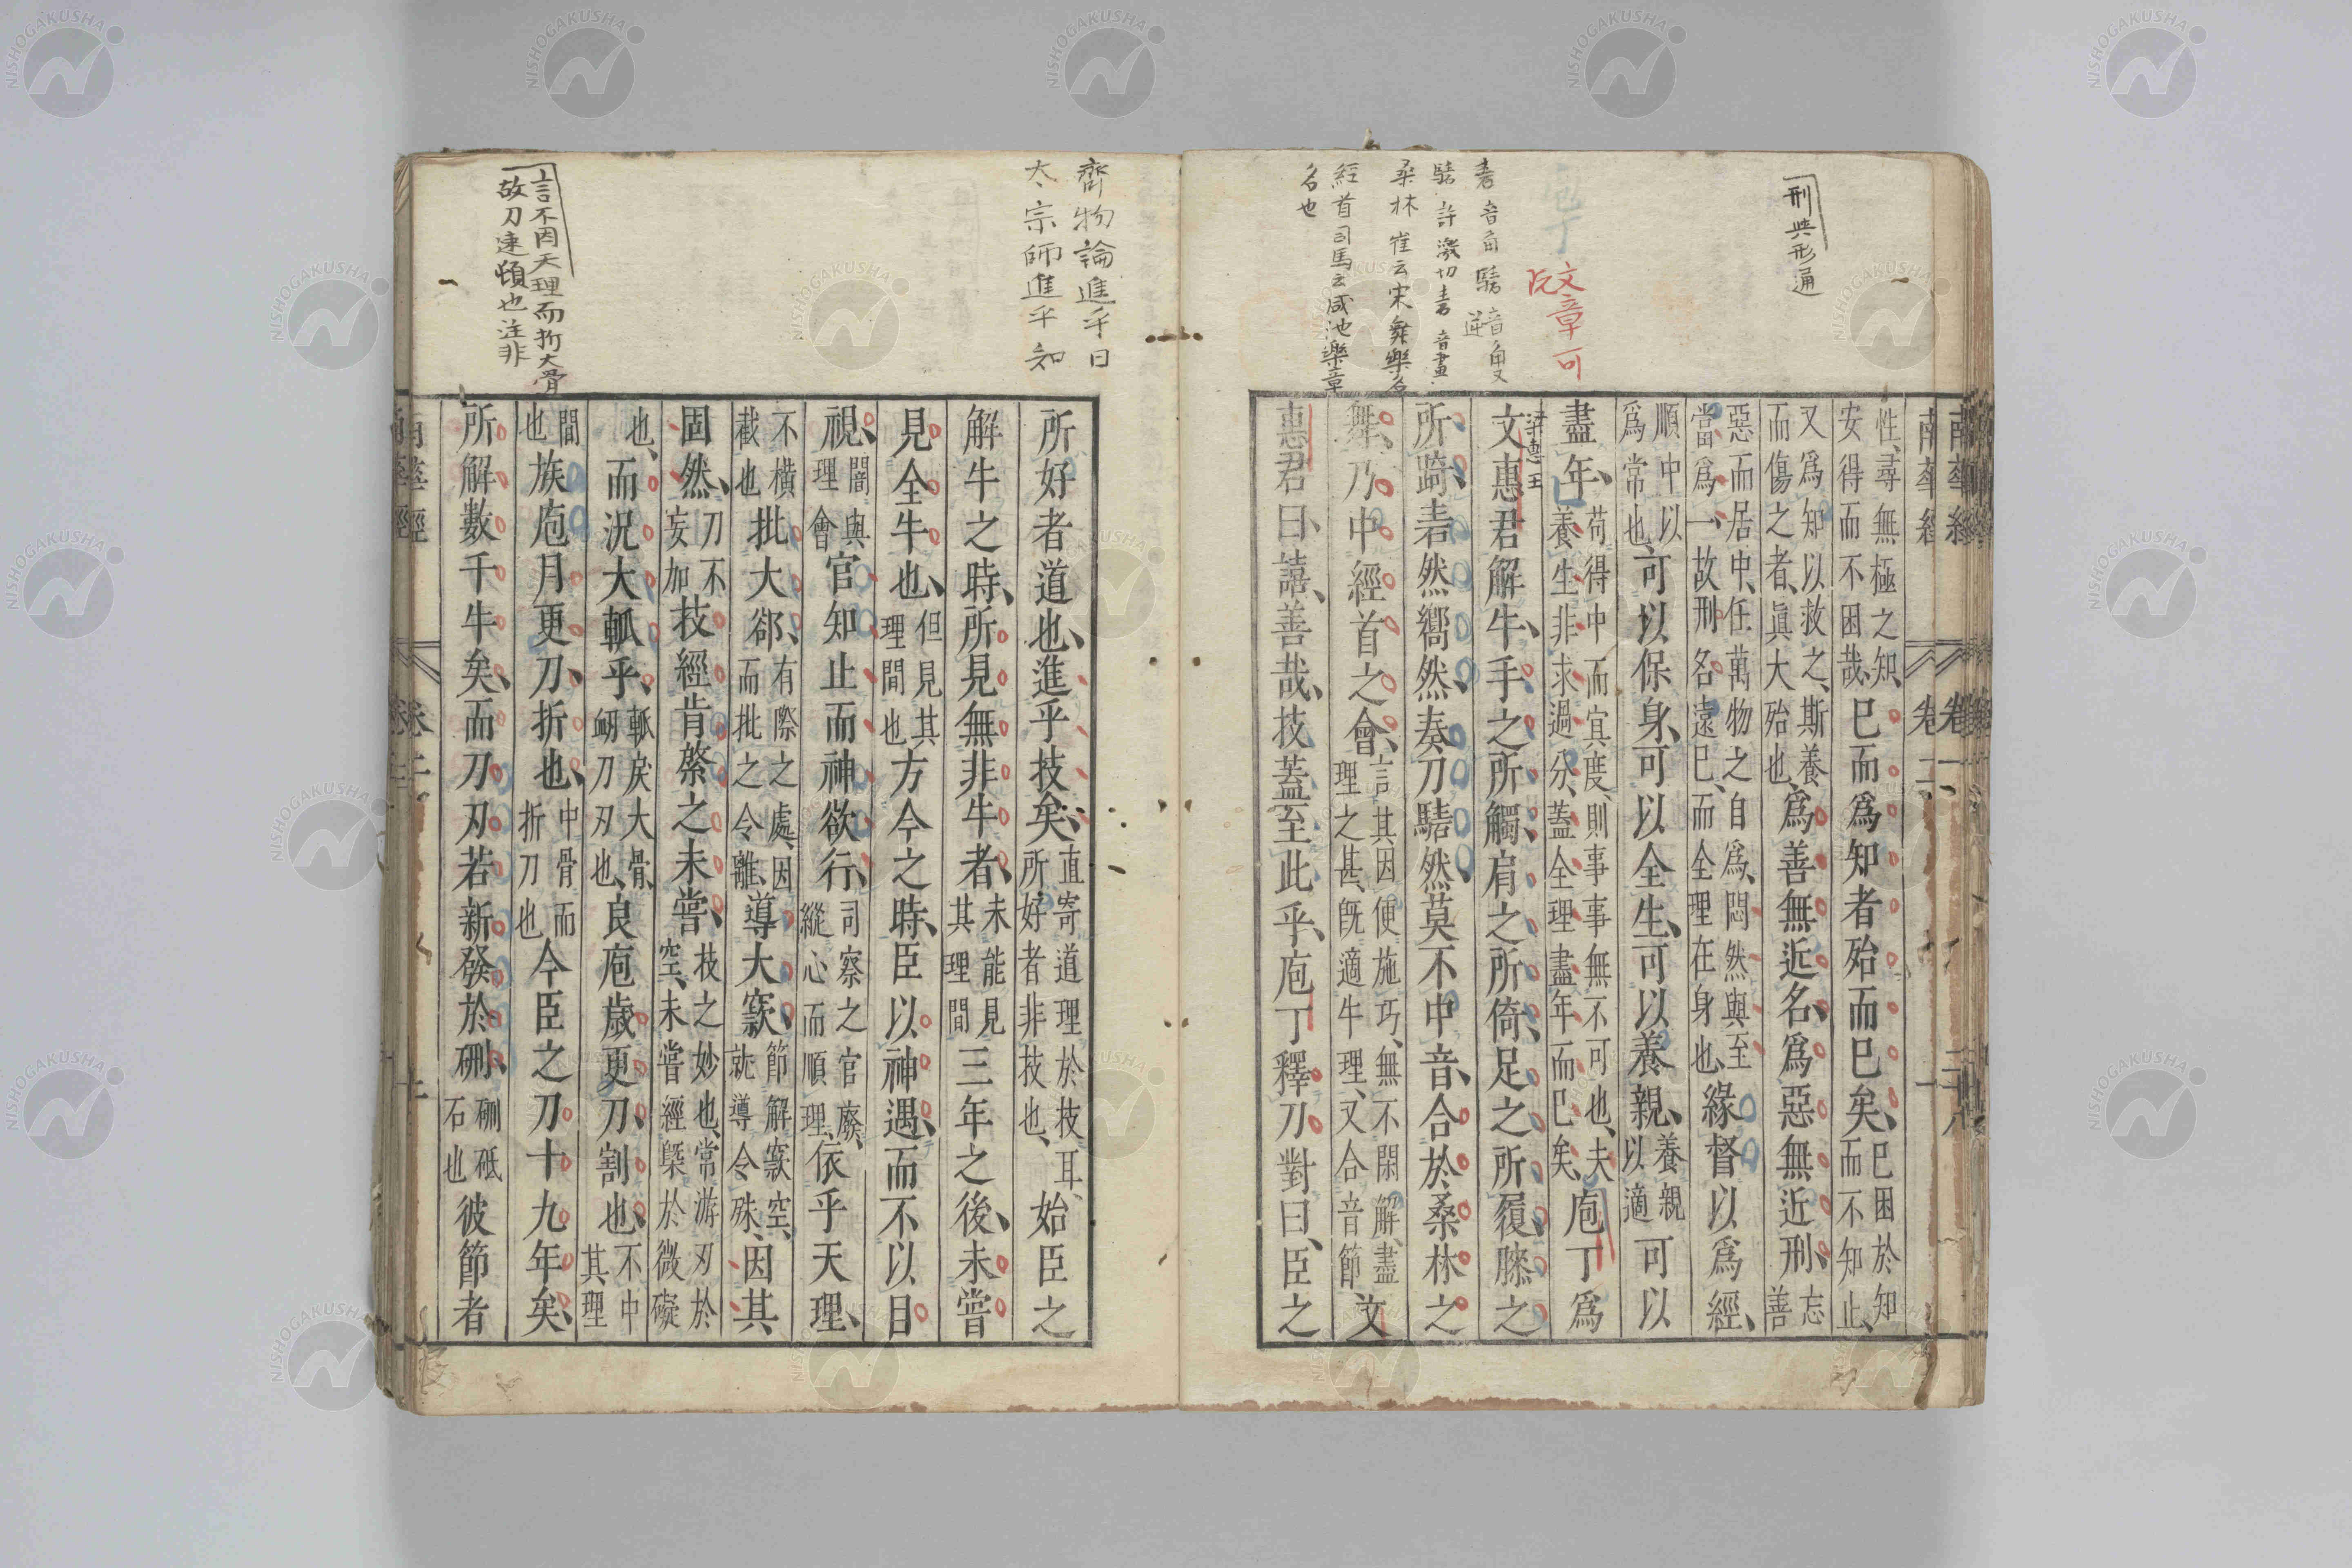 刑與形通
文章可
砉音畫騞音角又音逆
騞許㵣切砉音畫
桑林崔云宋舞樂名
經首司馬云咸池樂章
名也
南華經 卷二
性尋無極之知
安得而不困哉已而爲知者殆而已矣已困於知
而不知止
又爲知以救之斯養
而傷之者眞大殆也爲善無近名爲惡無近刑忘善
惡而居中任萬物之自爲悶然與至
當爲一故刑名遠己而全理在身也緣督以爲經
順中以
爲常也可以保身可以全生可以養親養親
以適可以
盡年苟得中而宜度則事事無不可也夫
養生非求過分蓋全理盡年而已矣庖丁爲
梁惠王
文惠君解牛手之所觸肩之所倚足之所履膝之
所踦砉然嚮然奏刀騞然莫不中音合於桑林之
舞乃中經首之會言其因便施巧無不閑解盡
理之甚旣適牛理又合音節文
惠君曰譆善哉技蓋至此乎庖丁釋刀對曰臣之
齊物論進乎日
大宗師進乎知
言不因天理而折大骨
故刀速頓也注非
所好者道也進乎技矣直寄道理於技耳
所好者非技也始臣之
解牛之時所見無非牛者未能見
其理間三年之後未嘗
見全牛也但見其
理間也方今之時臣以神遇而不以目
視闇與
理會官知止而神欲行司察之官廢
縱心而順理依乎天理
不橫
截也批大郤有際之處因
而批之令離導大窾節解窾空
就導令殊因其
固然刀不
妄加技經肯綮之未嘗技之妙也常游刃於
空未嘗經槩於微礙
也而況大軱乎軱戾大骨
衂刀刃也良庖歲更刀割也不中
其理
間
也族庖月更刀折也中骨而
折刀也今臣之刀十九年矣
所解數千牛矣而刀刃若新發於硎硎砥
石也彼節者
南華經 卷二